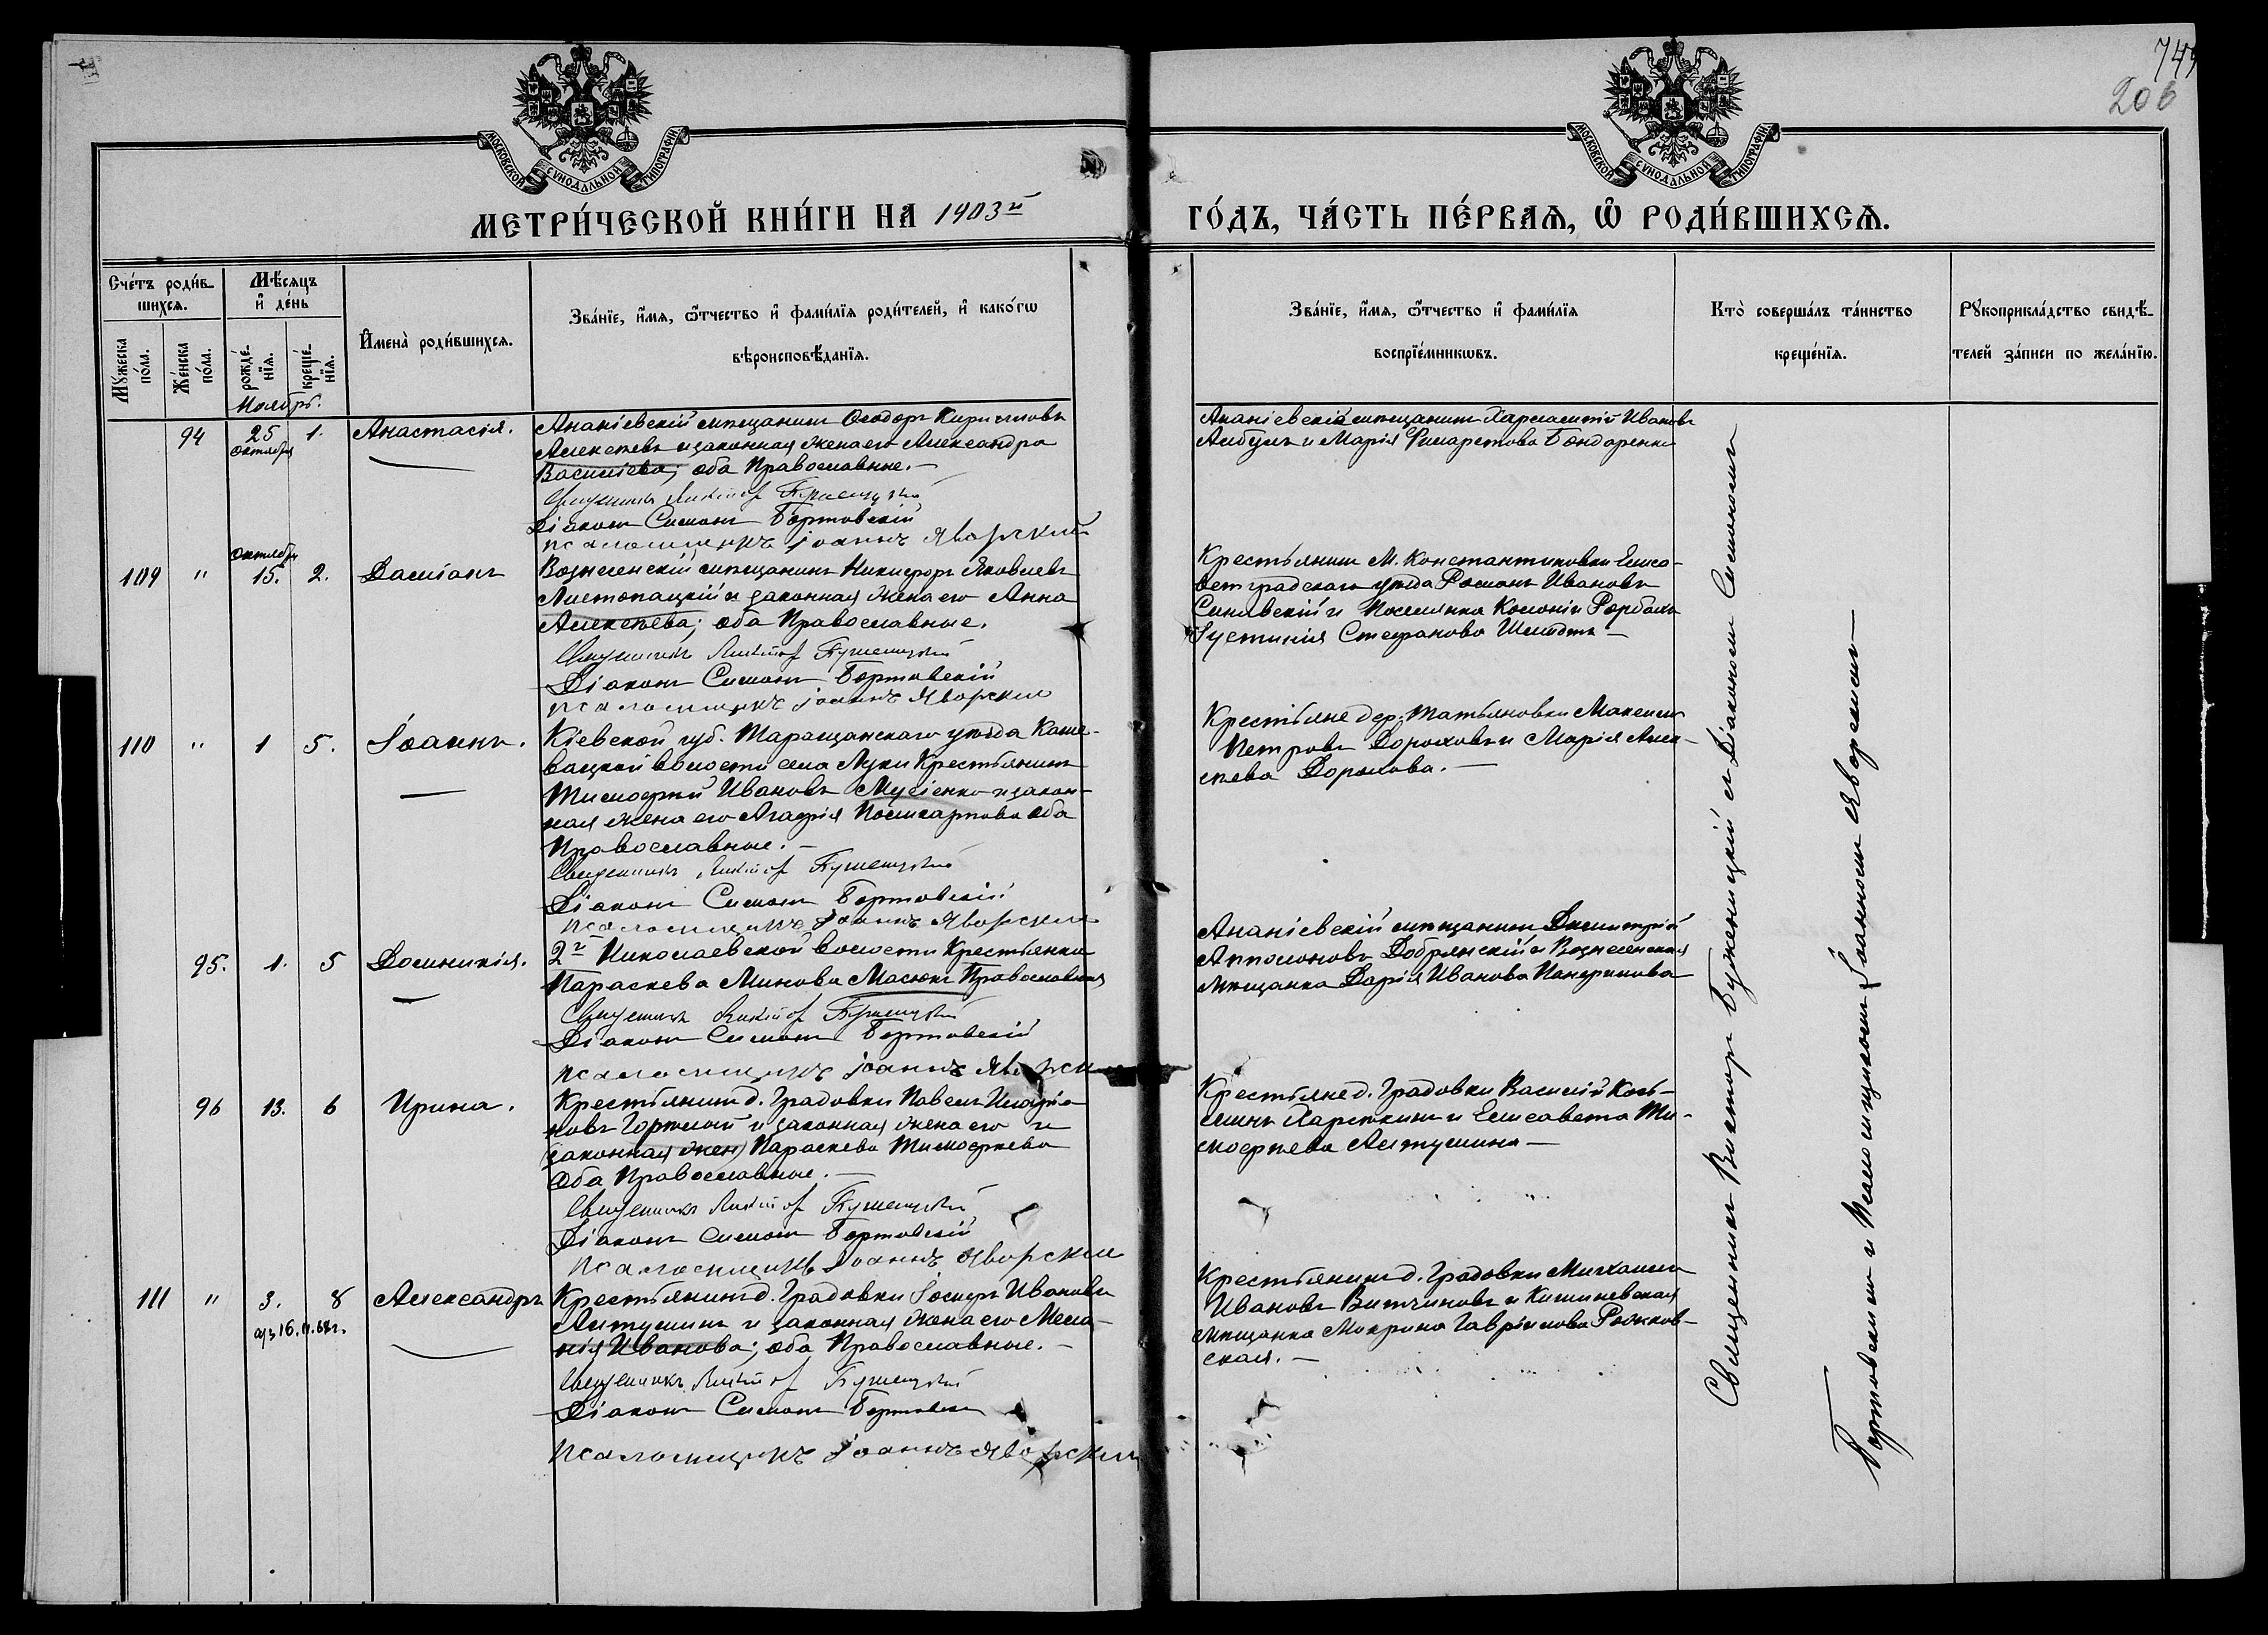 749
206
МОСКОВСКОЙ СѴНОДАЛЬНОЙ ТИПОГРАФІИ
МОСКОВСКОЙ СѴНОДАЛЬНОЙ ТИПОГРАФІИ
МЕТРИ́ЧЕСКОЙ КНИ́ГИ НА 1903й
ГО́ДЪ, ЧА́СТЬ ПЕ́РВАѦ, Ѽ РОДИ́ВШИХСѦ.
Сче́тъ роди́в-
шихся.
Мѣсяцъ
и҆ де́нь
Мꙋ́жеска по́ла.
Же́нска по́ла.
рожде́-
нїя.
креще́-
нїя.
И҆мена̀ роди́вшихся.
Зва́нїе, и҆́мя, ѻ҆́тчество и҆ фами́лїя роди́телей, и҆ како́гѡ
вѣроисповѣ́данїя.
Зва́нїе, и҆́мя, ѻ҆́тчество и҆ фами́лїя
воспрїе́мникѡвъ.
Кто̀ соверша́лъ та́инство
креще́нїя.
Рꙋкоприкла́дство свидѣ́-
телей за́писи по жела́нїю.
Ноябрь.
94 25 Октября 1. Анастасія.
Ананіевскій мѣщанинъ Ѳеодоръ Кирилловъ
Алексѣевъ и законная жена его Александра
Василіева; оба Православные.-
Священникъ Викторъ
Діаконъ Симонъ Бортовскій
псаломщикъ Іоаннъ Яворскій
Ананіевскій мѣщанинъ Харлампій Ивановъ
Албулъ и Марія Филаретова Бондаренко
109 " Октября 15. 2. Даміанъ
Вознесенскій мѣщанинъ Никифоръ Яковлевъ
Листопацкій и законная жена его Анна
Алексѣева; оба Православные.
Священникъ Викторъ
Діаконъ Симонъ Бортовскій
псаломщикъ Іоаннъ Яворскій
Крестьянинъ М. Константиновки Елиса-
ветградскаго уѣзда Романъ Ивановъ
Синявскій и поселянка Колоніи Рорбахъ
Іустинія Стефанова Шмидтъ -
110 " 1 5. Іоаннъ.
Кіевской губ. Таращанскаго уѣзда Каше-
вацкой волости села Луки Крестьянинъ
Тимофей Ивановъ Мусіенко и закон-
ная жена его Агафія Поликарпова оба
Православные.-
Священникъ Викторъ
Діаконъ Симонъ Бортовскій
псаломщикъ Іоаннъ Яворскій
Крестьяне дер. Татьяновки Максимъ
Петровъ Дороховъ и Марія Алек-
сѣева Дорохова.-
95. 1. 5 Домникія.
2й Николаевской волости Крестьянка
Параскева Минова Масюкъ Православная
Священникъ Викторъ
Діаконъ Симонъ Бортовскій
псаломщикъ Іоаннъ Яворскій
Ананіевскій мѣщанинъ Димитрій
Апполоновъ Добрянскій и Вознесенская
мѣщанка Дарія Иванова
96 13. 6 Ирина.
Крестьянинъ д. Градовки Павелъ Иларіо-
новъ и законная жена его и
(законная жен) Параскева Тимофѣева
Оба Православные.-
Священникъ Викторъ
Діаконъ Симонъ Бортовскій
псаломщикъ Іоаннъ Яворскій
Крестьяне д. Градовки Василій Козь-
минъ и Елисавета Ти-
мофѣева Антушина -
111 " 3. 8 Александръ
16.
Крестьянинъ д. Градовки Іосифъ Ивановъ
Антушинъ и законная жена его Мела-
нія Иванова; оба Православные.-
Священникъ Викторъ
Діаконъ Симонъ Бортовскій
псаломщикъ Іоаннъ Яворскій
Крестьянинъ д. Градовки Михаилъ
Ивановъ и Кишиневская
мѣщанка Макрина Гавріилова Рожков-
ская.-
Священникъ Викторъ съ Діакономъ Симономъ
Бортовскимъ и Псаломщикомъ Іоанномъ Яворскимъ -